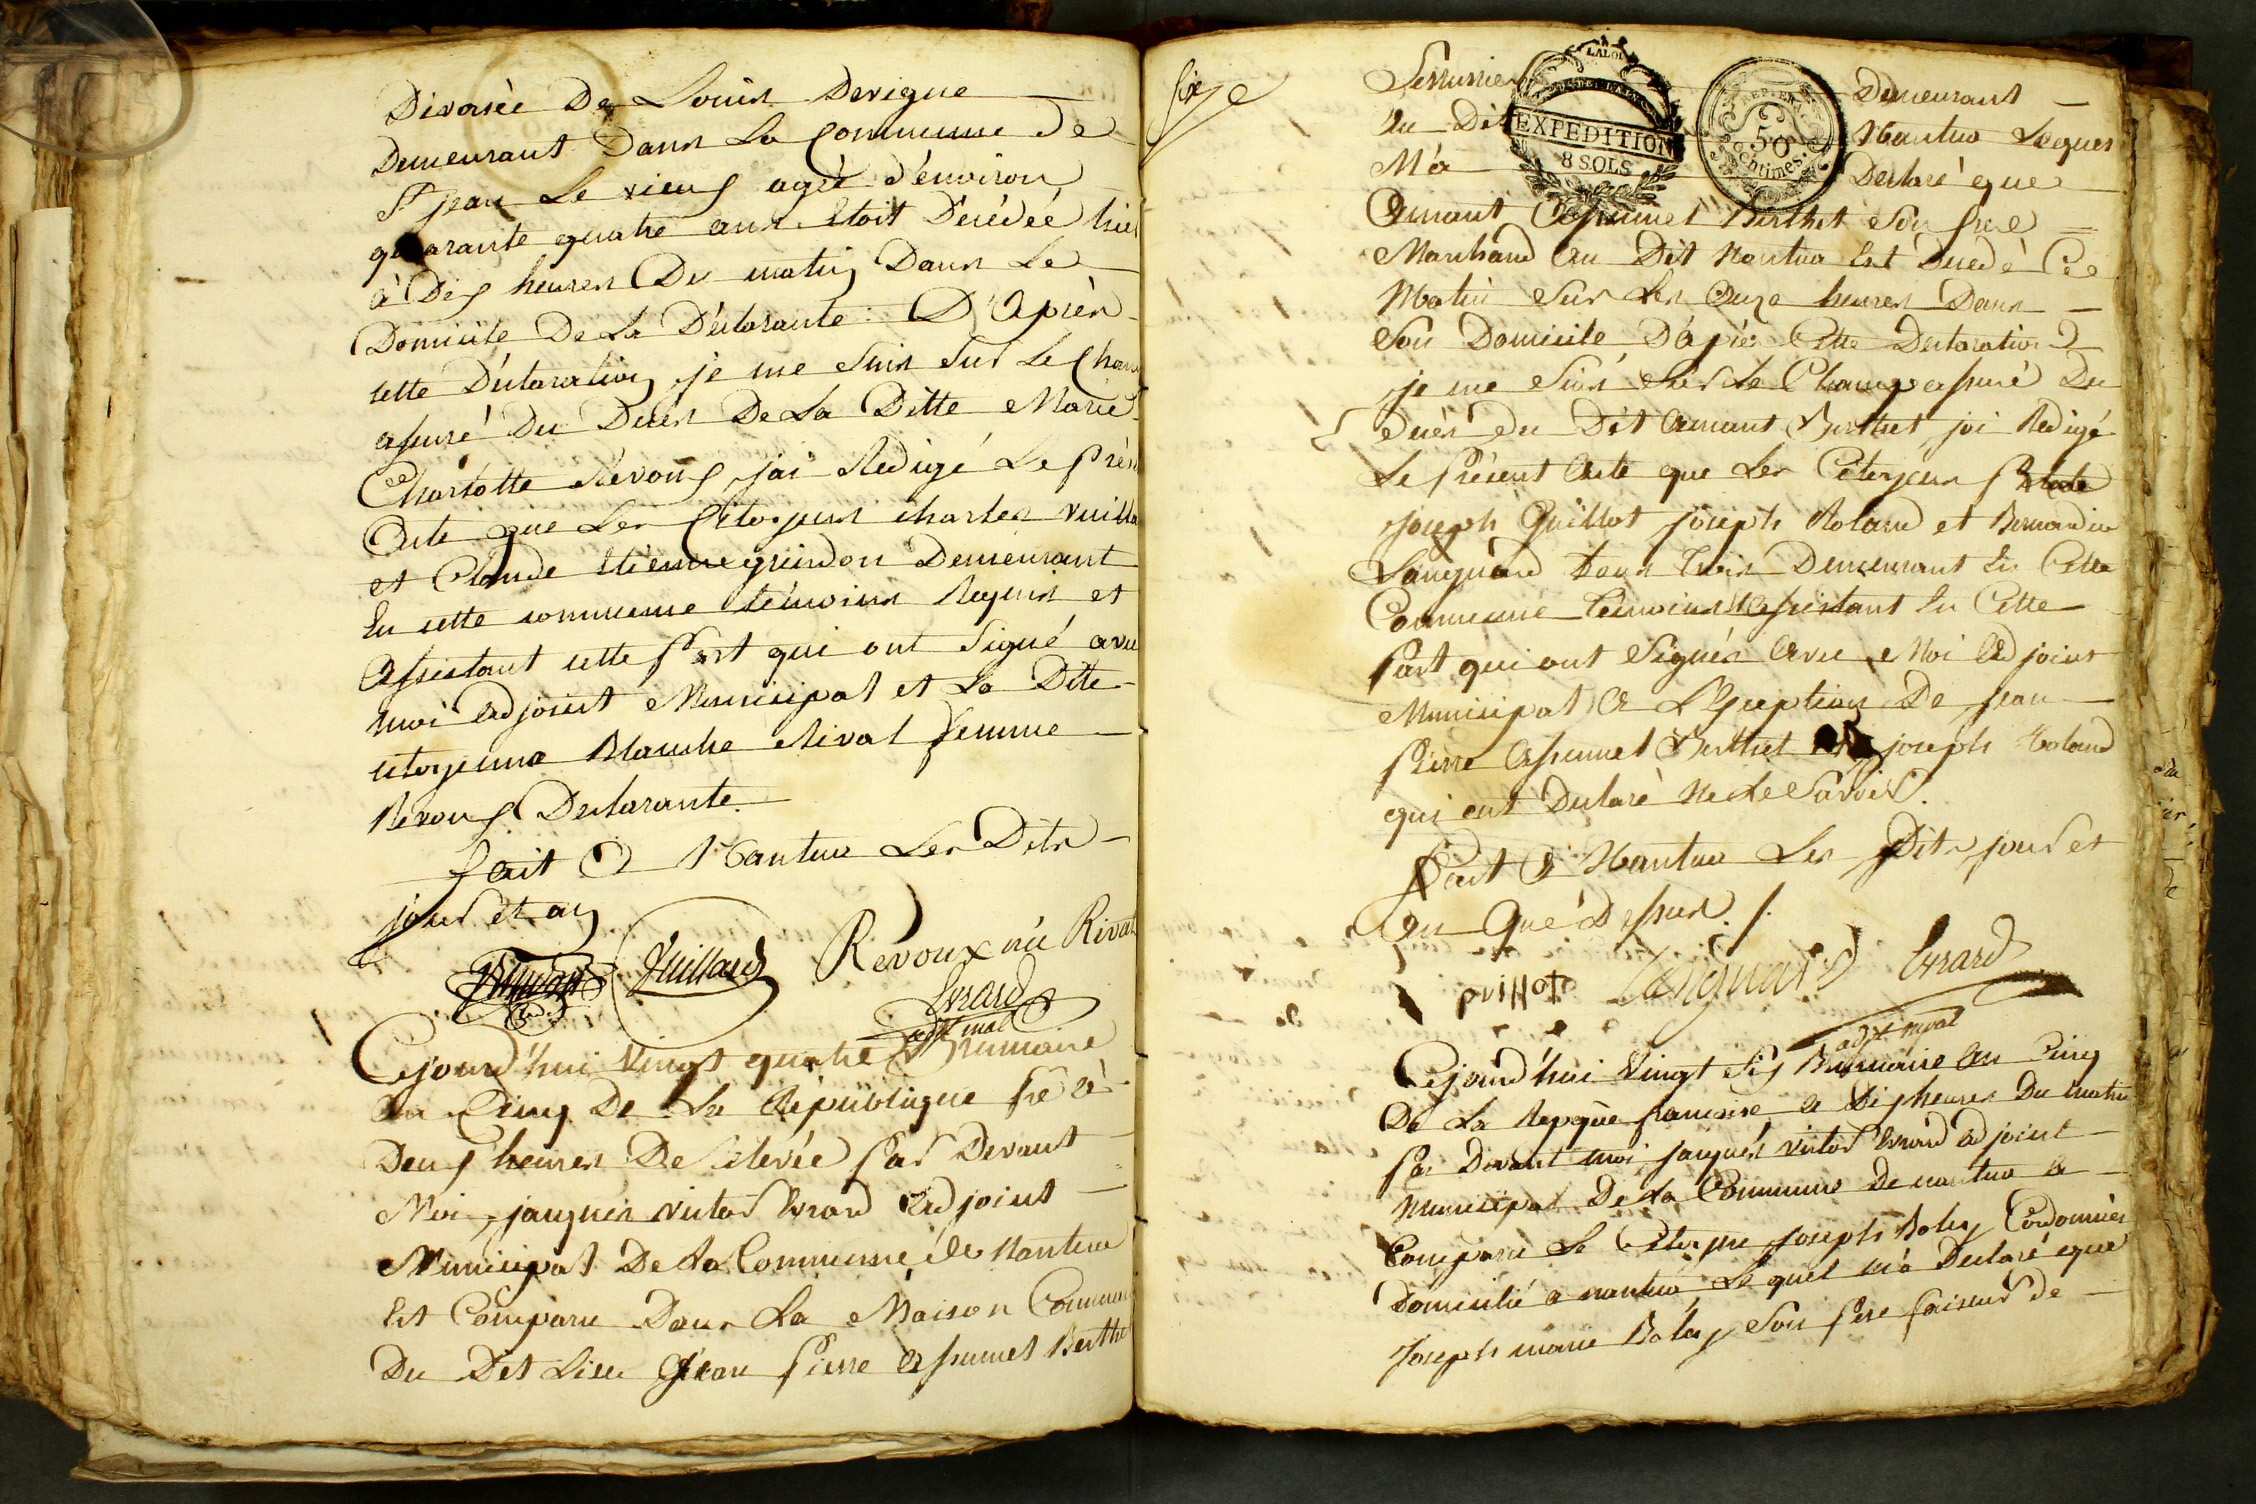 Divorcée De Louis Devigne
Demeurant Dans La Commune De
St jean Le vieux agée d'environ
quarante quatre ans Etoit Décédée hier
à Dix heures Du matin Dans Le
Domicile De La Déclarante. D'Après
cette Déclaration je me Suis Sur Le Cham
assuré Du Decès De La Ditte Marie
Charlotte Revoux j'ai Redigé Le Prés
Acte que Les Citoyens charles vuilla
et Claude Etienne grindon Demeurant
En cette commune témoins Requis et
Assistant cette Part qui ont Signé avec
moi adjoint Municipal et La Dite
citoyenne Blanche Rival femme
Revoux Declarante.
fait A Nantua Les Dits
jour et an
Vuillard Revoux née Rival
Evrard
adjt mal
Cejourd'hui Vingt quatre Brumaire
An Cinq De La République fse à
Deux heures De Relevée Par Devant
Moi jacques victor Evrard adjoint
Municipal De La Commune de Nantua
Est Comparu Dans La Maison Commune
Du Dit Lieu Jean Pierre Assumel Berthet
Six
Serrurier Demeurant
Au Dit Nantua Lequel
M'a Déclaré que
Amant Assumel Berthet Son frere
Marchand Au Dit Nantua Est Décédé Ce
Matin Sur Les Onze heures Dans
Son Domicile D'après Cette Declaration
je me Suis Sur Le Champ assuré Du
Decès Du Dit Amant Berthet j'ai Redigé
Le Présent Acte que Les Citoyens
Joseph Guillot joseph Roland et Bernardin
Sanguard tous trois Demeurant En Cette
Commune témoins Assistant En Cette
Part qui ont Signés Avec Moi Adjoint
Municipal A L'Exception De jean
Pierre Assumel Berthet joseph Roland
qui ont Declaré Ne Le Savoir.
Fait A Nantua Les Dits jour et
An Que Dessus ./.
guillot Sanguard Evrard
adjt mpal
Cejourd'hui Vingt Six Brumaire An Cinq
De La Repque francaise a Dix heures Du matin
Par Devant moi jacques victor Evrard adjoint
Municipal De La Commune De nantua a
Comparu Le Citoyen joseph Boley Cordonnier
Domicilié a nantua, Le quel m'a Declaré que
Joseph marie Boley Son Pere faiseur de
LALOI
EXPEDITION
8 SOLS
REP. FRA
50
Centimes.